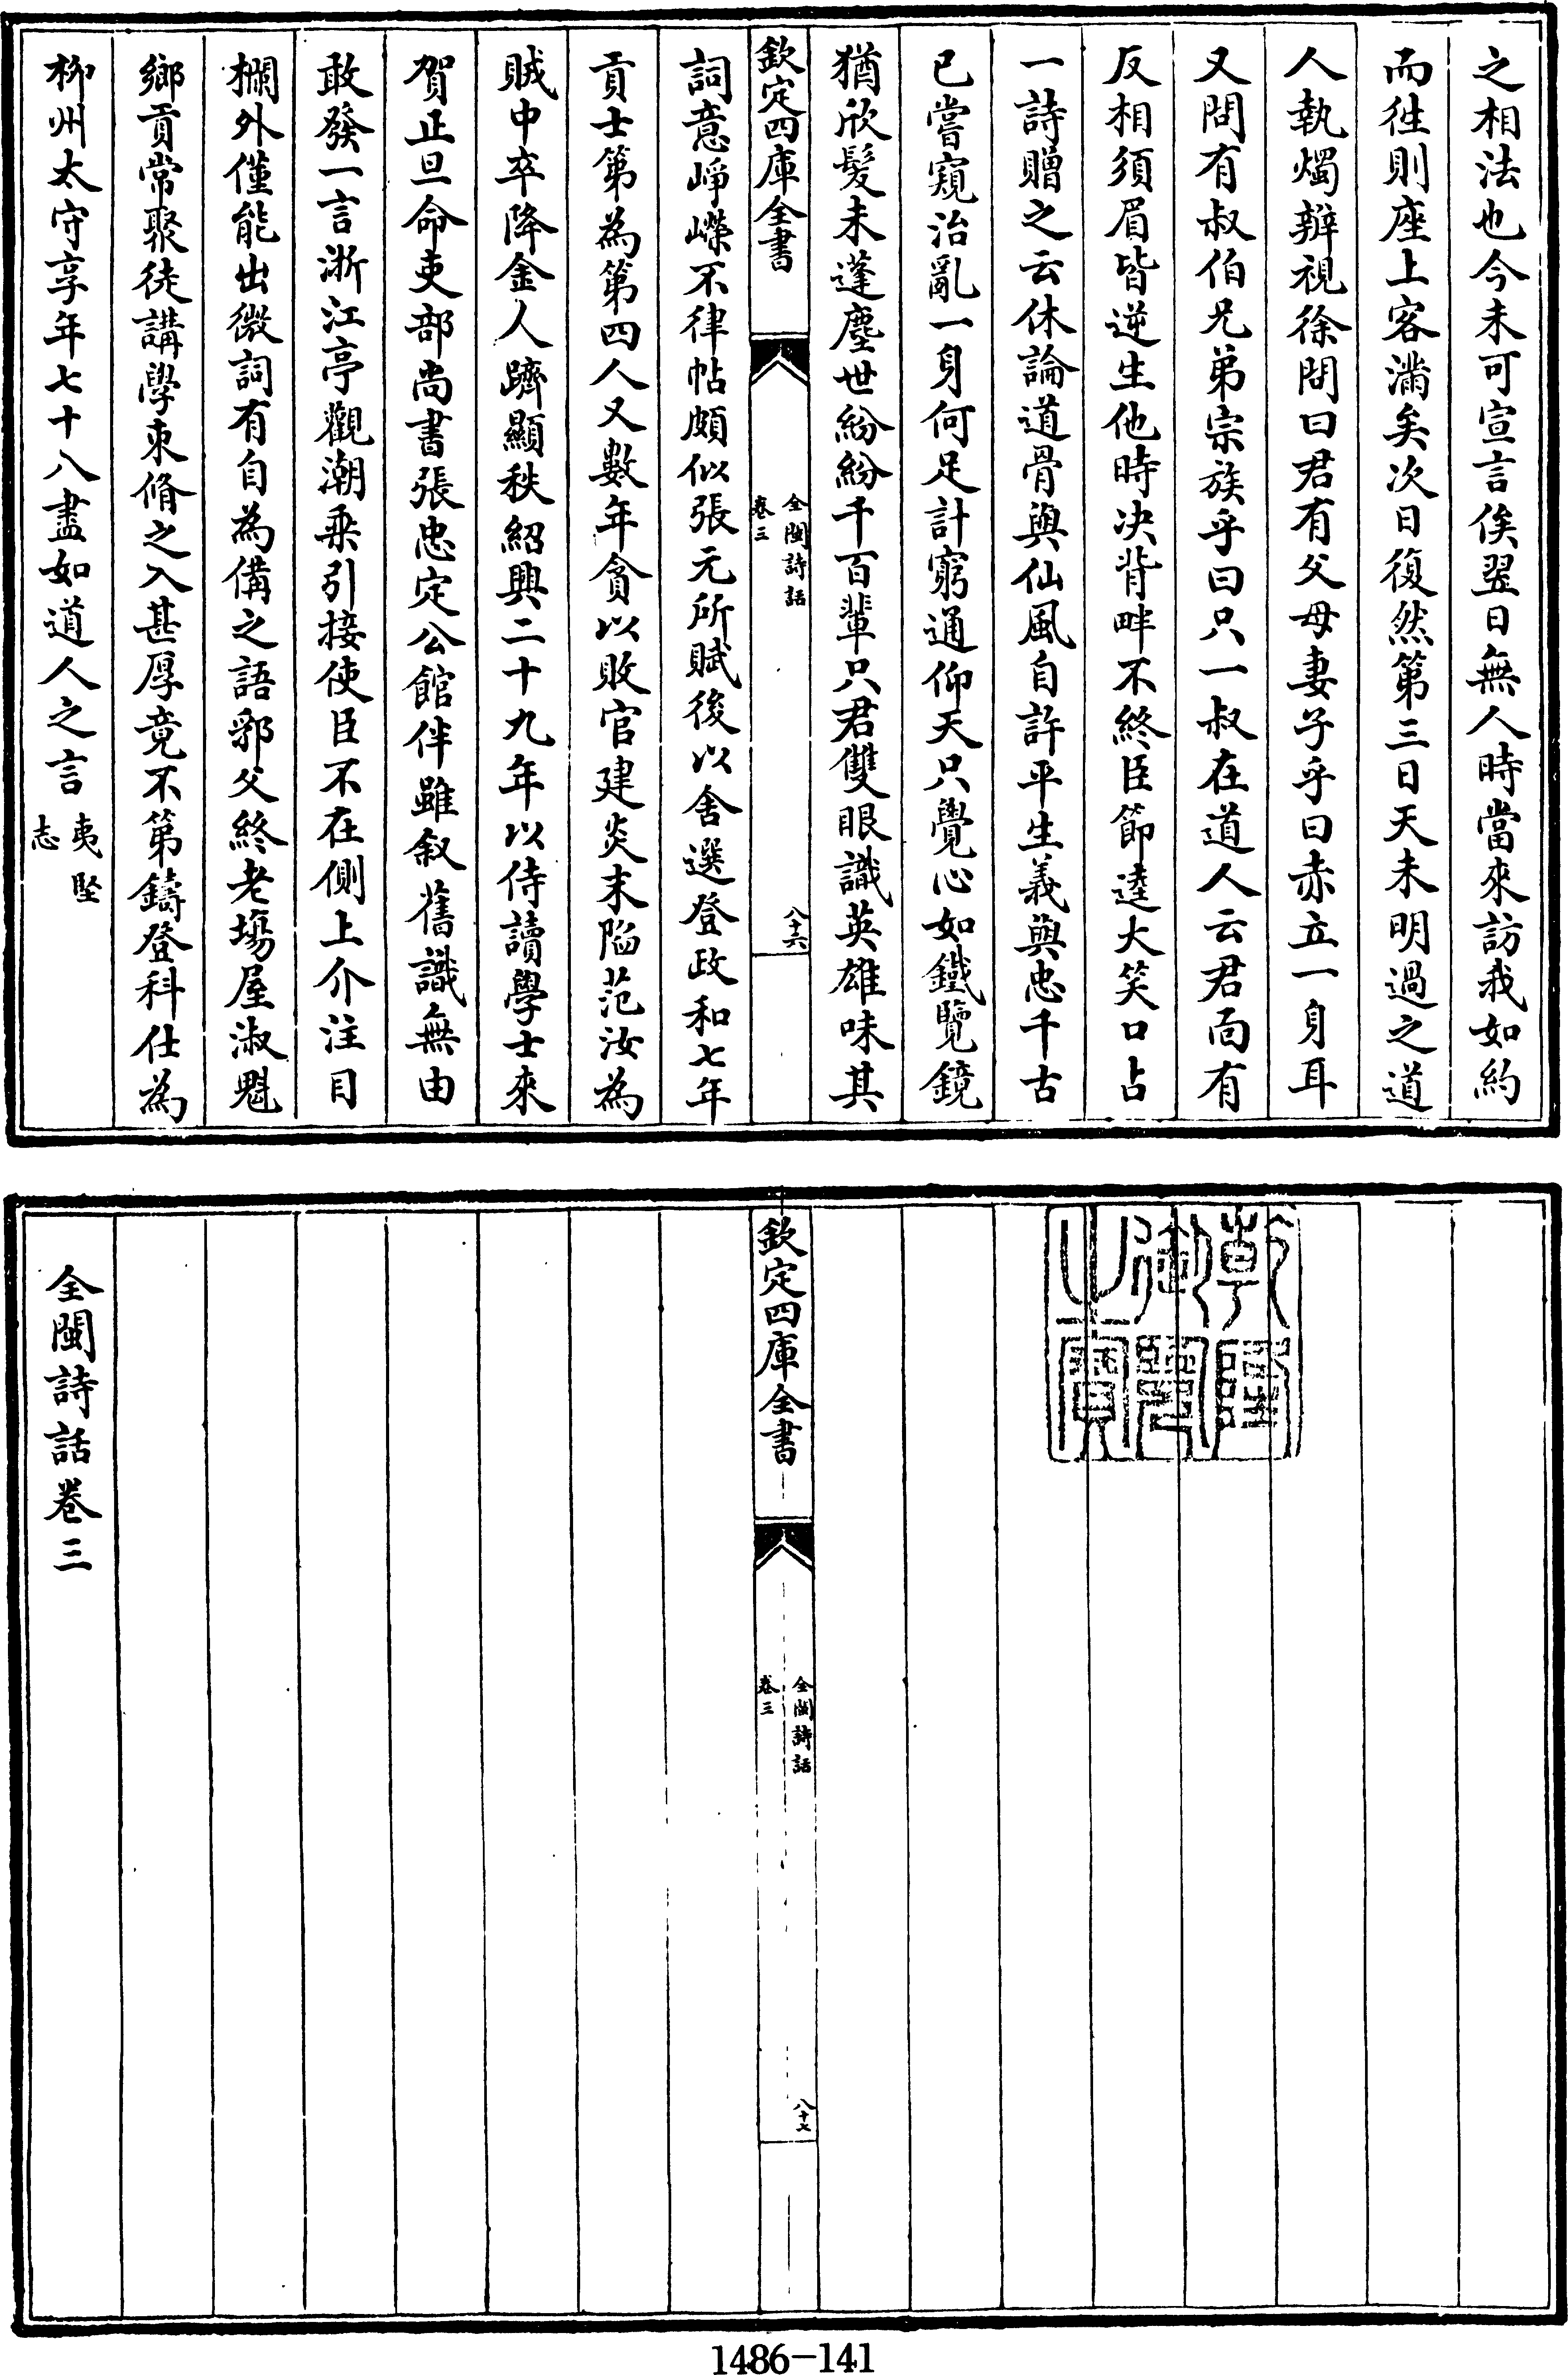 之相法也今未可宣言俟翌日無人時當來訪我如約
而徃則座上客滿矣次日復然第三日天未明過之道
人執燭辨視徐問曰君有父母妻子乎曰赤立一身耳
又問有叔伯兄弟宗族乎曰只一叔在道人云君面有
反相須眉皆逆生他時决背畔不終臣節逵大笑口占
一詩贈之云休論道骨與仙風自許平生義與忠千古
已嘗窺治亂一身何足計窮通仰天只覺心如鐵覽鏡
猶欣髮未蓬塵世紛紛千百輩只君雙眼識英雄味其
欽定四庫全書
全閩詩話
卷三
八十六
詞意崢嶸不律帖頗似張元所賦後以舍選登政和七年
貢士第為第四人又數年貪以敗官建炎末陷范汝為
賊中卒降金人躋顯秩紹興二十九年以侍讀學士來
賀正旦命吏部尚書張忠定公館伴雖叙舊識無由
敢發一言浙江亭觀潮乘引接使臣不在側上介注目
欄外僅能出微詞有自為儔之語鄂父終老塲屋淑魁
鄉貢常聚徒講學束脩之入甚厚竟不第鑄登科仕為
柳州太守享年七十八盡如道人之言夷堅
志
乾隆
御覽
之寶
欽定四庫全書
全閩詩話
卷三
八十七
全閩詩話卷三
1486-141